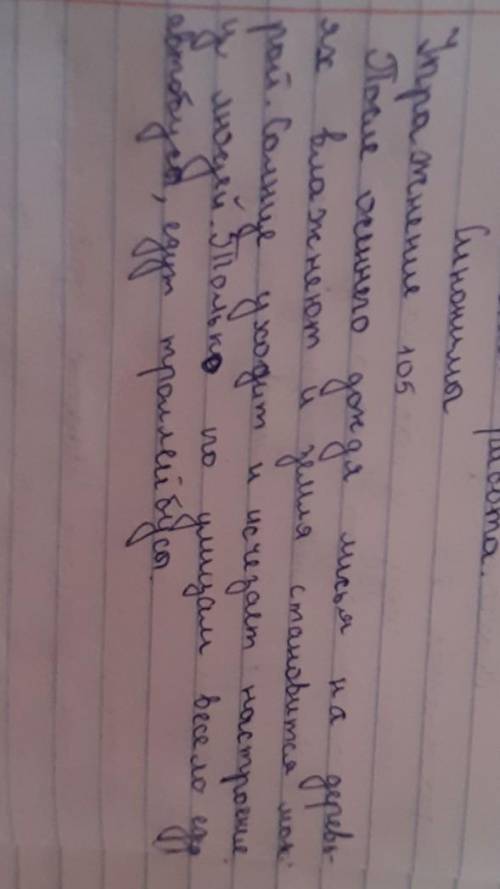 работа.
Синонимы
Упражнение 105
После осеннего дождя листья на деревь-
ях влажнеют и земля становится мок-
рой. Солнце уходит и исчезает настроение
у людей. Только по улицам весело еду
автобусы, едут троллейбусы.